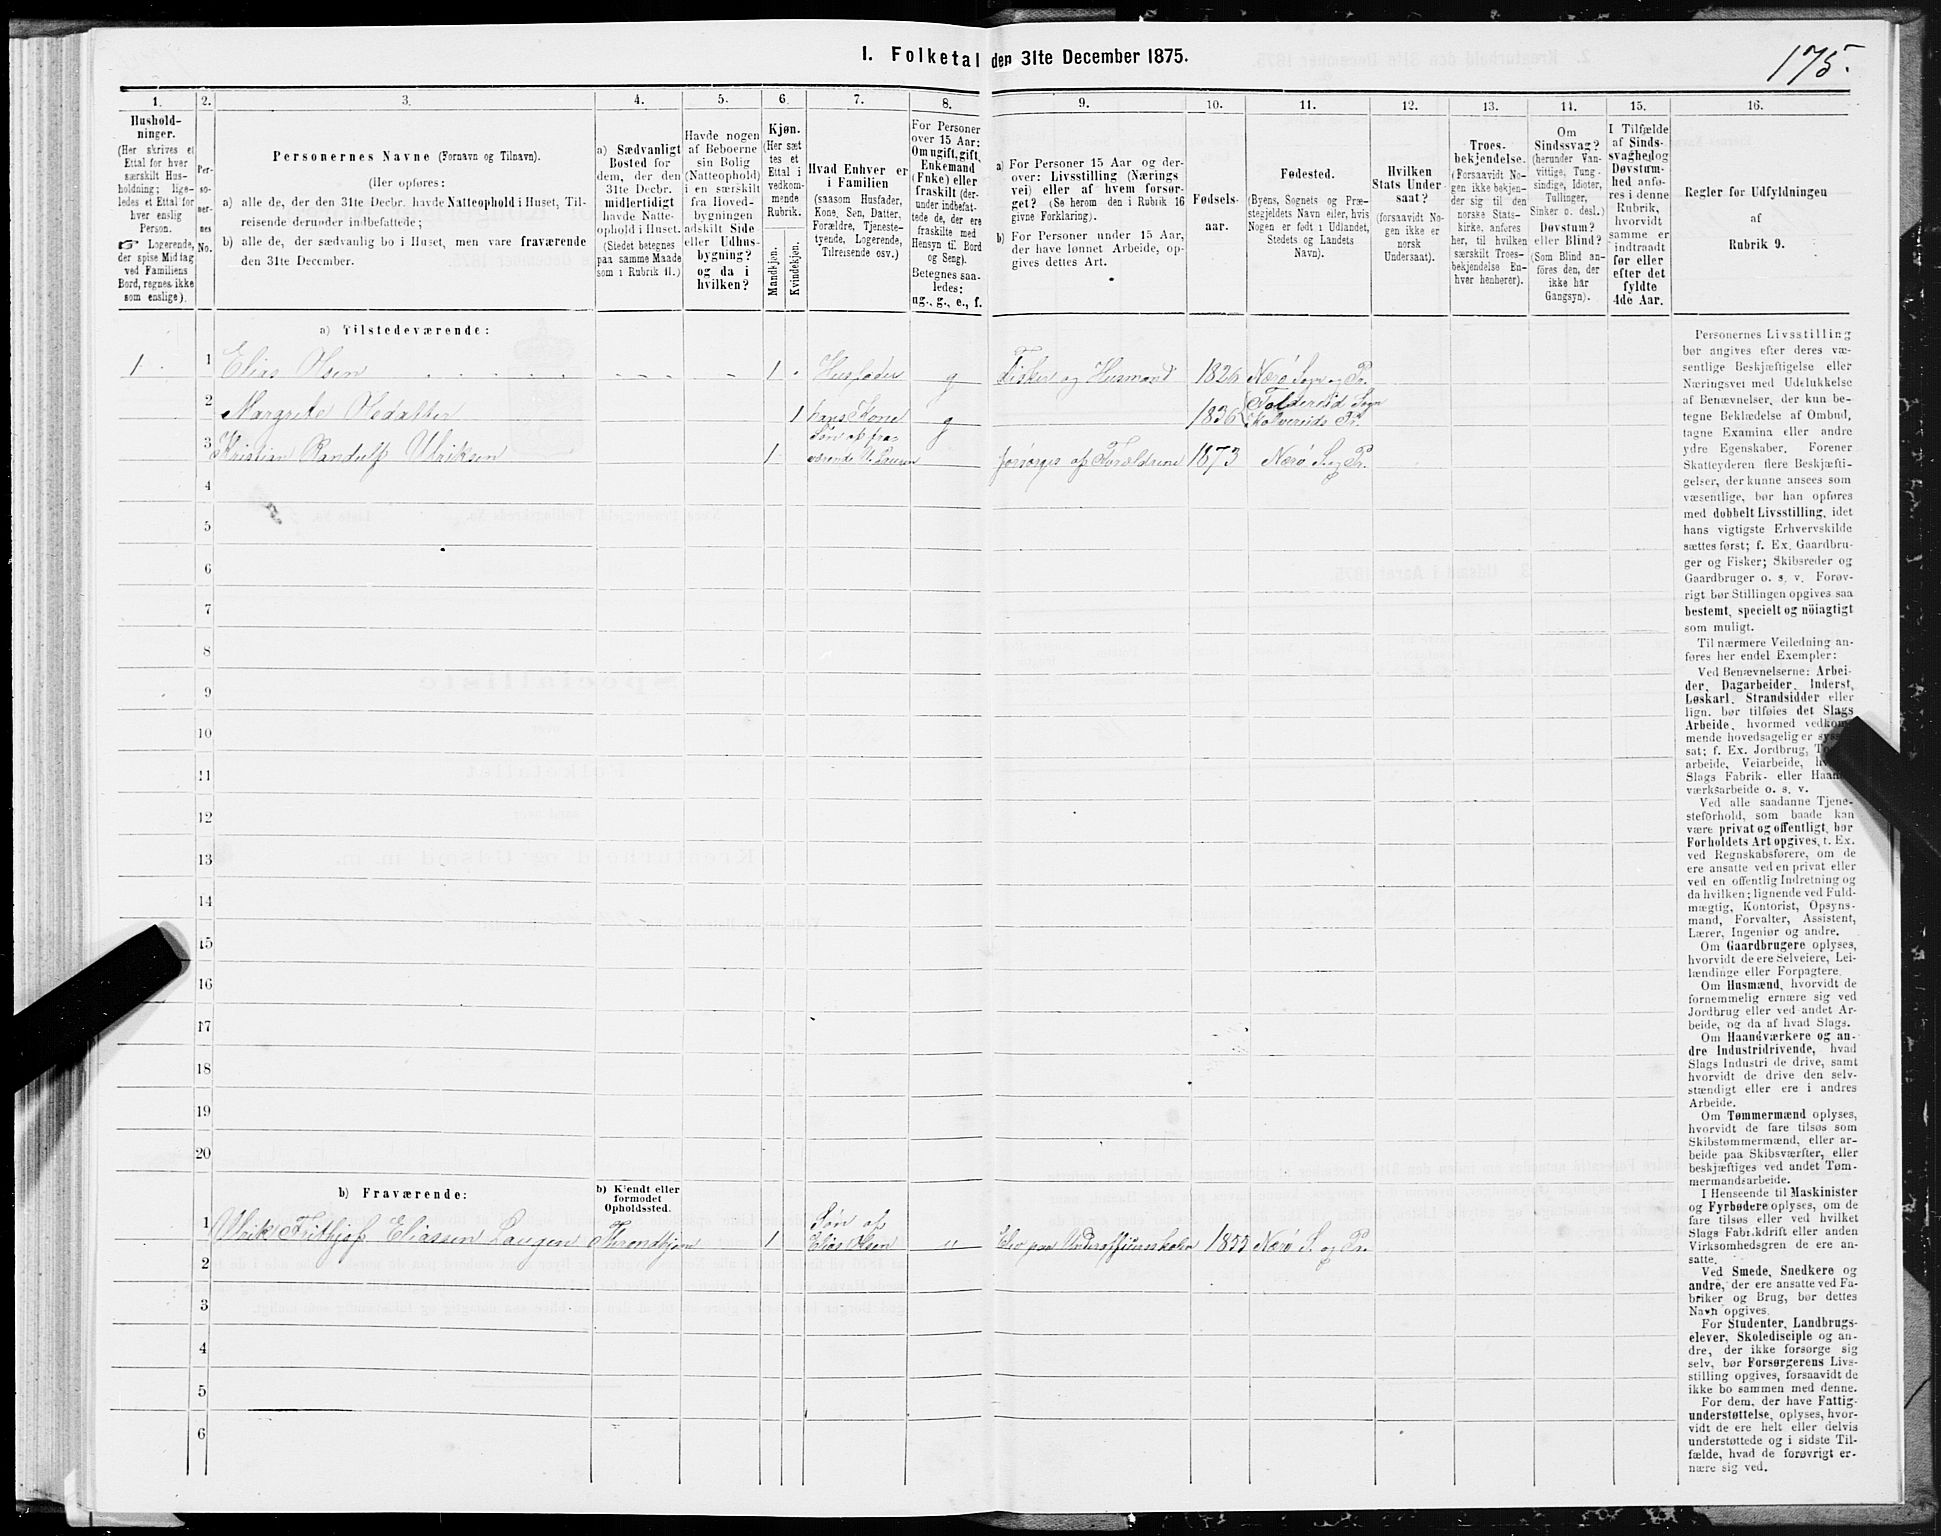 175.
I. Folketal den 31te December 1875.
1.
2.
3.
4.
5.
6.
7.
8.
9.
10.
11.
12.
13.
14.
15.
16.
Hushold-
ninger.
(Her skrives et
Ettal for hver
særskilt Hus-
holdning; lige-
ledes et Ettal for
hver enslig
Person.
☞ Logerende,
der spise Middag
ved Familiens
Bord, regnes ikke
som enslige).
Per-
so-
ner-
nes
No.
Personernes Navne (Fornavn og Tilnavn).
(Her opføres:
a) alle de, der den 31te Decbr. havde Natteophold i Huset, Til-
reisende derunder indbefattede;
b) alle de, der sædvanlig bo i Huset, men vare fraværende
den 31te December.
a) Sædvanligt
Bosted for
dem, der den
31te Decbr.
midlertidigt
havde Natte-
ophold i Huset.
(Stedet betegnes
paa samme Maade
som i Rubrik 11.)
Havde nogen
af Beboerne
sin Bolig
(Natteophold)
i en særskilt
fra Hoved-
bygningen
adskilt Side
eller Udhus-
bygning?
og da i
hvilken?
Kjøn.
(Her sæt
tes et
Ettal i
vedkom-
mende
Rubrik.
Mandkjøn.
Kvindekjøn.
Hvad Enhver er
i Familien
(saasom Husfader,
Kone, Søn, Datter,
Forældre, Tjeneste-
tyende, Logerende,
Tilreisende osv.)
For Personer
over 15 Aar:
Om ugift, gift,
Enkemand
(Enke) eller
fraskilt (der-
under indbefat-
tede de, der ere
fraskilte med
Hensyn til Bord
og Seng).
Betegnes saa-
ledes:
ug., g., e., f.
a) For Personer 15 Aar og der-
over: Livsstilling (Nærings
vei) eller af hvem forsør-
get? (Se herom den i Rubrik 16
givne Forklaring).
b) For Personer under 15 Aar,
der have lønnet Arbeide, op-
gives dettes Art.
Fødsels-
aar.
Fødested.
(Byens, Sognets og Præ-
stegjeldets Navn eller, hvis
Nogen er født i Udlandet,
Stedets og Landets
Navn).
Hvilken
Stats Under-
saat?
(forsaavidt No-
gen ikke er
norsk
Undersaat).
Troes-
bekjendelse.
(Forsaavidt No-
gen ikke bekjen-
der sig til den
norske Stats-
kirke, anføres
her, til hvilken
særskilt Troes-
bekjendelse En-
hver henhører).
Om
Sindssvag?
(herunder Van-
vittige, Tung-
sindige, Idioter,
Tullinger,
Sinker o. desl.)
Døvstum?
eller Blind?
(Som Blind an-
føres den, der
ikke har
Gangsyn).
I Tilfælde
af Sinds-
svaghed og
Døvstum-
hed anfø-
res i denne
Rubrik,
hvorvidt
samme er
indtraadt
før eller
efter det
fyldte
4de Aar.
Regler for Udfyldningen
af
Rubrik 9.
a) Tilstedeværende:
1 1 Elias Olsen 1 Husfader g Fisker og Husmand 1826 Nærø Sogn og Pr.
2 Margrete Olsdatter 1 hans Kone g 1836 Foldereid Sogn Kolvereids Pr.
3 Kristian Randulf Ulriksen 1 Søn af fra-
værende U. Laugen forsørges af Forældrene 1873 Nærø S. og Pr.
4
5
6
7
8
9
10
11
12
13
14
15
16
17
18
19
20
b) Fraværende:
b) Kjendt eller
formodet
Opholdssted.
1 Ulrik Frithjof Eliassen Laugen Throndhjem 1 Søn af
Elias Olsen Elev paa Underofficersskolen 1855 Nærø S. og Pr.
2
3
4
5
6
Personernes Livsstilling
bør angives efter deres væ-
sentlige Beskjæftigelse eller
Næringsvei med Udelukkelse
af Benævnelser, der kun be-
tegne Beklædelse af Ombud,
tagne Examina eller andre
ydre Egenskaber. Forener
Skatteyderen flere Beskjæfti-
gelser, der kunne ansees som
væsentlige, bør han opføres
med dobbelt Livsstilling, idet
hans vigtigste Erhvervskilde
sættes først; f. Ex. Gaardbru-
ger og Fisker; Skibsreder og
Gaardbruger o. s. v. Forøv-
rigt bør Stillingen opgives saa
bestemt, specielt og nöiagtigt
som muligt.
Til nærmere Veiledning an-
føres her endel Exempler:
Ved Benævnelserne: Arbei-
der, Dagarbeider, Inderst,
Løskarl, Strandsidder eller
lign. bør tilføies det Slags
Arbeide, hvormed vedkom-
mende hovedsagelig er syssel-
sat; f. Ex. Jordbrug,
arbeide, Veiarbeide,
Slags Fabrik- eller Haand-
værksarbeide o. s. v.
Ved alle saadanne Tjene-
steforhold, som baade kan
være privat og offentligt, bør
Forholdets Art opgives, f. Ex.
ved Regnskabsførere, om de
ere ansatte ved en privat eller
ved en offentlig Indretning og
da hvilken; lignende ved Fuld-
mægtig, Kontorist, Opsyns-
mand, Forvalter, Assistent,
Lærer, Ingeniør og andre.
Om Gaardbrugere oplyses,
hvorvidt de ere Selveiere, Lei-
lændinge eller Forpagtere.
Om Husmænd, hvorvidt de
fornemmelig ernære sig ved
Jordbrug eller ved andet Ar-
beide, og da af hvad Slags.
Om Haandværkere og an-
dre Industridrivende, hvad
Slags Industri de drive, samt
hvorvidt de drive den selv-
stændigt eller ere i andres
Arbeide.
Om Tømmermænd oplyses,
hvorvidt de fare tilsøs som
Skibstømmermænd, eller ar-
beide paa Skibsværfter, eller
beskjæftiges ved andet Tøm-
mermandsarbeide.
I Henseende til Maskinister
og Fyrbødere oplyses, om de
fare tilsøs eller ved hvilket
Slags Fabrikdrift eller anden
Virksomhedsgren de ere an-
satte.
Ved Smede, Snedkere og
andre, der ere ansatte ved Fa-
briker og Brug, bør dettes
Navn opgives.
For Studenter, Landbrugs-
elever, Skoledisciple og an-
dre, der ikke forsørge sig
selv, bør Forsørgerens Livs-
stilling opgives, forsaavidt de
ikke bo sammen med denne.
For dem, der have Fattig-
understøttelse, oplyses, hvor-
vidt de ere helt eller delvis
understøttede og i sidste Til-
fælde, hvad de forøvrigt er-
nære sig ved.